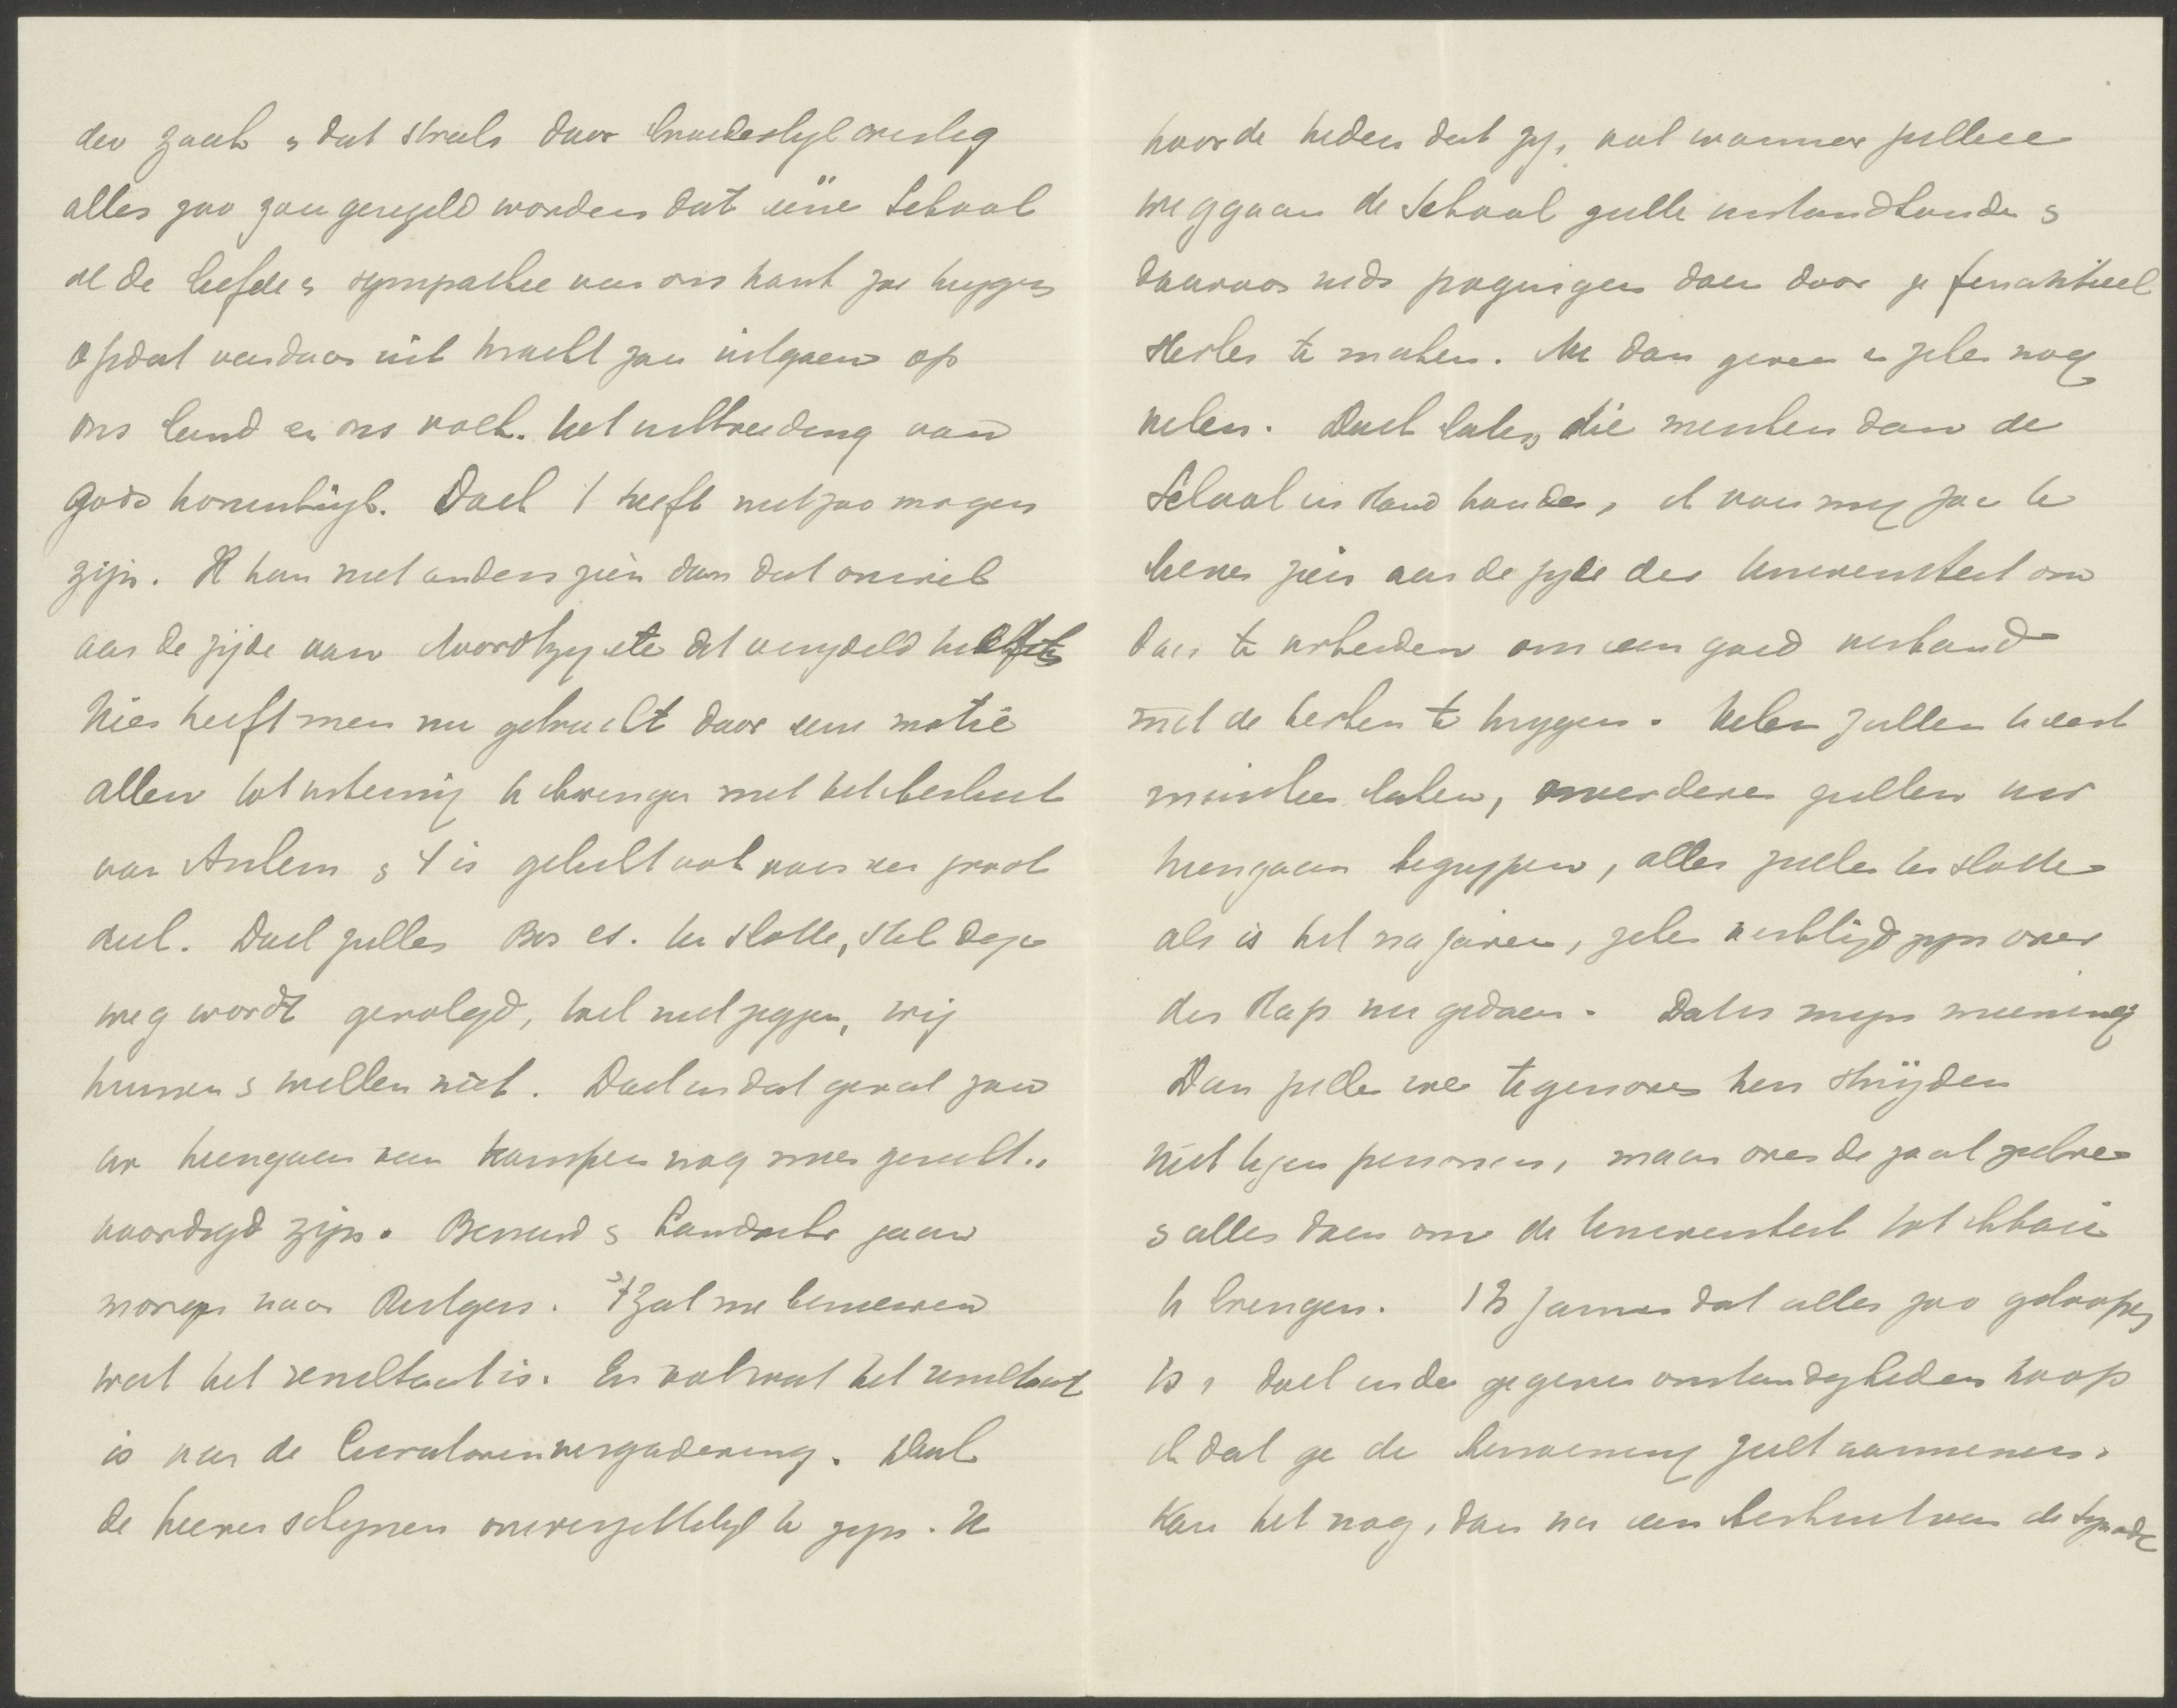 der zaak & dat straks door broederlijk overleg
alles zoo zou geregeld worden dat eene School
al de liefde & sympathie van ons kant zou krijgen
opdat vandaar uit kracht zou uitgaan op
ons land en ons volk. tot uitbreiding van
Gods koninkrijk. Doch 't heeft niet zoo mogen
zijn. Ik kan niet anders zien dan dat onwil
aan de zijde van Noordtzij etc dit verijdeld heeft
Hier heeft men nu getracht door eene motie
allen tot instemming te brengen met het besluit
van Arnhem & 't is gelukt ook voor een groot
deel. Doch zullen Bos cs. ten slotte, als deze
weg wordt gevolgd, toch niet zeggen, wij
kunnen & willen niet. Doch in dat geval zou
uw heengaan van Kampen nog meer gerecht-
vaardigd zijn. Barend & Landwehr gaan
morgen naar Rutgers. 't Zal me benieuwen
wat het resultaat is. En ook wat het resultaat
is van de Curatorenvergadering. Want
de heeren schijnen onverzettelijk te zijn. Ik
hoorde heden dat zij, ook wanneer jullie
weggaan de School zullen instandhouden &
daarvoor reeds pogingen doen door ze financieel
sterker te maken. Nu dan geven er zeker nog
velen. Doch laten die menschen dan de
School in stand houden, ik voor mij zou te
liever zien aan de zijde der Universiteit om
daar te arbeiden om een goed verband
met de kerken te krijgen. Velen zullen u eerst
minder achten, anderen zullen uw
heengaan begrijpen, allen zullen ten slotte
als is het na jaren, zeker verblijd zijn over
den stap nu gedaan. Dat is mijn meening
Dan zullen we tegenover hen strijden
niet tegen personen, maar over de zaak zelve
& alles doen om de Universiteit tot bloei
te brengen. 't Is jammer dat alles zoo geloopen
is, doch in de gegeven omstandigheden hoop
ik dat ge de benoeming zult aannemen.
Kan het nog, dan na een besluit van de Synode